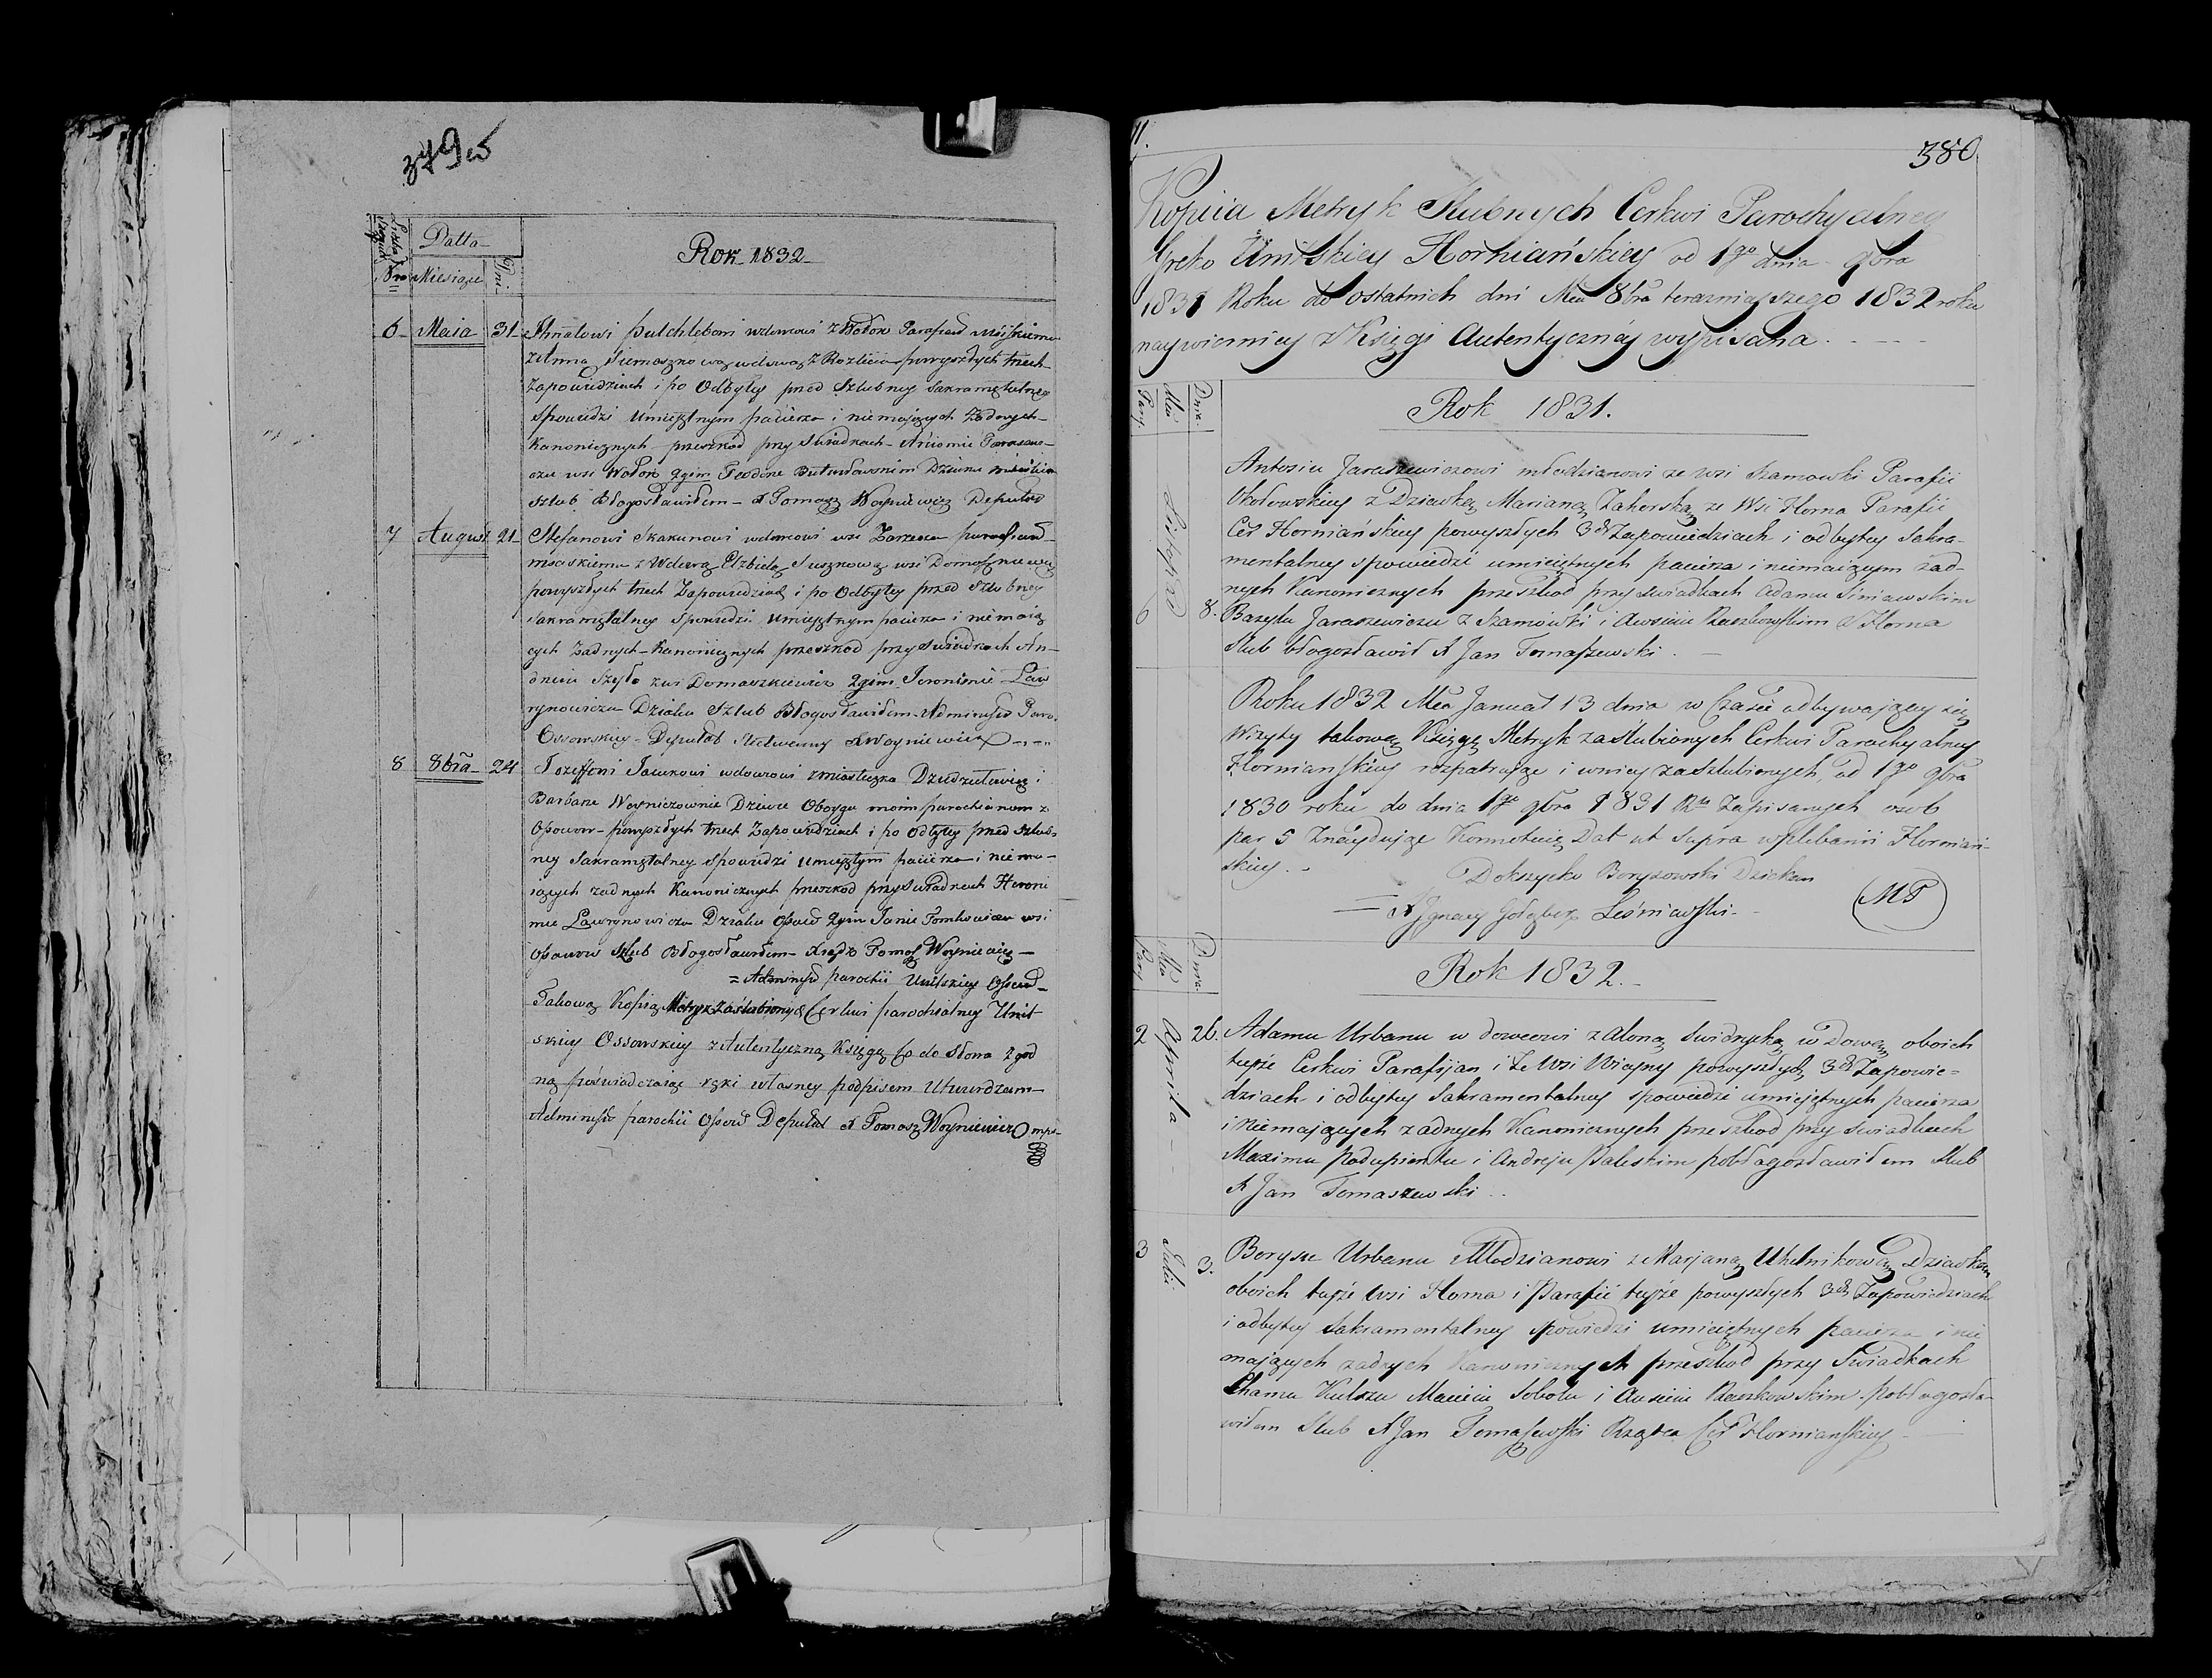 379 w
Liczba
Datta
Nro Miesiące Dni
Rok 1832
6 Maia 31 Ihnatowi Pulchlebowi wdowcowi z Wołok Parafiad Mśćiskiemu
z Anną Siemaszkową wdową z Rozlicia powyszłych trzech
zapowiedziach i po Odbyłey przed Szlubney sakramętalney
spowiedzi Umieiętnym pacierza i niemaiących Żadnych
Kanonicznych przeszkod przy Swiadkach
czu wsi Wołok 2gim
Szlub Błogosławiłem X Tomasz Woyniewicz Deputat
7 August 21 Stefanowi Skakunowi wdowcowi wsi Zarzecza parafiand
msciskiemu z Wdową Elżbietą Susznową wsi
powyszłych trzech Zapowiedziach i po Odbyłey przed Szlubney
sakramętalney Spowiedzi Umieiętnym pacierza i niemaią
cych żadnych Kanonicznych przeszkod przy Swiadkach An
drieiu Szyło z wsi Domaszkowicz 2gim Jeronimie Ław
rynowiczu Dziaku Szlub Błogosławiłem Administr Paro.
Ossowskiey Deputat X Woyniewicz
8 8bra 24 Jozeffowi Jackowi wdowcowi zmiasteczka i
Barbarze Woyniczownie Dziewce Oboyga moim parochianom z
Ossowow powyszłych trzech Zapowiedziach i po odbyłey przed szlub
ney Sakramętalney Spowiedzi Umieiętym pacierza i niema
iących zadnych Kanonicznych przeszkod przy Swiadkach Heroni
mie Ławrynowiczu Dziaku Ossow 2gim Janie Tomkowiczu wsi
Ossowow Szlub Błogosławiłem Xiądz Tomasz Woyniewicz
= Administr parochii Unitskiey Ossow
Takową Kopią Metryk Zaślubionych Cerkwi parochialney Unit
skiey Ossowskiey z Autentyczną Księgą Co do słowa zgod
ną poświadczaiąc ręki własney podpisem Utwierdzam
Administr parochii Ossow Deputat X Tomasz Woyniewicz mpr
380
Kopiia Metryk Slubnych Cerkwi Parochyalney
Greko Unitskiey Horniańskiey od 1go dnia 9bra
1831 Roku do ostatnich dni Mca 8bra terazniayszego 1832 roku
naywierniey z Księgi Autentyczney wypisana.
Pary Mca Dnia Rok 1831.
Antosiu Jaraszewiczowi młodzianowi ze wsi Szamowki Parafii
Okołowskiey z Dziewką Marianą Zahorską ze Wsi Horna Parafii
Cer Horniańskiey powyszłych 3ch Zapowiedziach i odbytey Sakra-
mentalney spowiedzi umieiętnych pacierza i niemaiącym zad-
nych Kanonicznych przeszkod przy swiadkach Adamu Siniawskim
6 Listopad 8. Bazylu Jaraszewiczu z Szamowki i Awsieiu Raczkowskim z Horna
Slub błogosławił X Jan Tomaszewski.
Roku 1832 Mca Januar 13 dnia w Czasie odbywaiącey się
Wizyty takową Księgę Metryk zaślubionych Cerkwi Parochyalney
Hornianskiey rozpatruiąc i wniey zaszlubionych, od 1go 9bra
1830 roku do dnia 1go 9bra 1831 Rku Zapisanych osob
par 5 Znayduiąc Konnotuię Dat ut Supra wplebanii Horniań-
skiey.
Dokszycko Boryzowski Dziekan
X Jgnacy Gołębicz Leśniewski.
(MP)
Pary Mca Dnia Rok 1832.
2 Aprila 26. Adamu Urbanu wdowcowi z Aloną Swidrycką wDową oboich
teyże Cerkwi Parafijan i Ze Wsi Wiazny powyszłych 3ch Zapowie-
dziach i odbytey Sakramentalney spowiedzi umieiętnych pacierza
i niemaiących zadnych Kanonicznych przeszkod przy swiadkach
Maximu Podupientu i Andreju Paleskim pobłagosławiłem Slub
X Jan Tomaszewski.
3 Julii 3. Boryse Urbanu Młodzianowi z Marjaną Uhelnikową Dziewką
oboich teyże Wsi Horna i Parafii teyże powyszłych 3ch Zapowiedziach
i odbytey Sakramentalney spowiedzi umieiętnych pacierza i nie
maiących zadnych Kanonicznych przeszkod przy Swiadkach
Chamu Kulszu Macieiu Sobolu i Awsieiu Raczkowskim pobłagosła-
wiłem Slub X Jan Tomaszewski Rządca Cer Horniańskiey